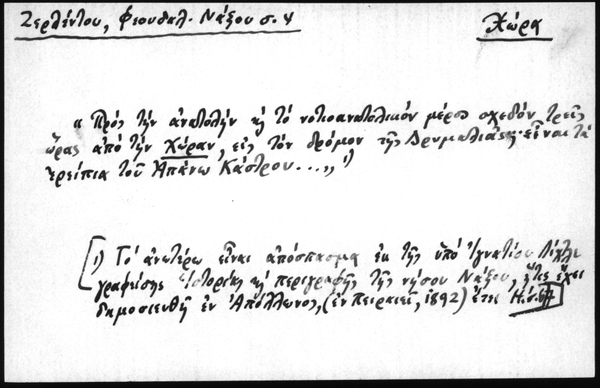 Ζερλέντου, Φεουδαλ. Νάξου σ. 4
Χώρα
« Πρός τήν ἀνατολήν ϗ τό νοτιοανατολικόν μέρος σχεδόν τρεῖς
ὥρας ἀπό τήν Χώραν, εἰς τόν δρόμον τῆς Δρυμαλίας εἶναι τά
ἐρείπια τοῦ Ἀπάνω Κάστρου...» 1)
[1) Τό ἀνωτέρω εἶναι ἀπόσπασμα ἐκ τῆς ὑπό Ἰγνατίου Λίχτλε
γραφείσης Ἱστορίας ϗ περιγραφῆς τῆς νήσου Νάξου, ἥτις ἔχει
δημοσιευθῆ ἐν Ἀπόλλωνος, (ἐν Πειραιεῖ, 1892) ἔτει